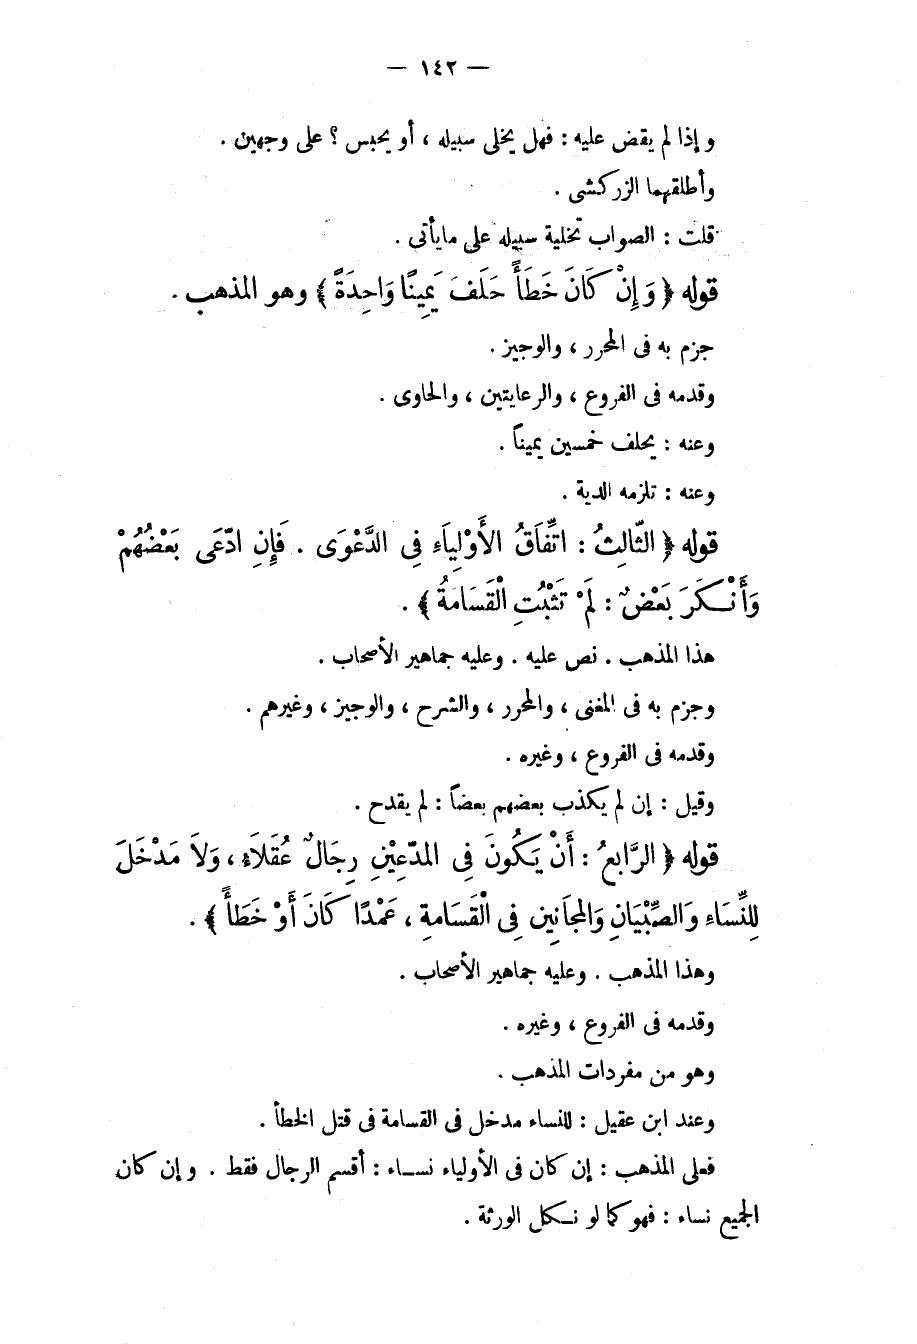 — ١٤٢ —
و إذا لم يقض عليه : فهل يخلى سبيله ، أو يحبس ؟ على وجهين .
وأطلقهما الزركشى .
قلت : الصواب تخلية سبيله على مايأتى .
قوله ﴿ وَإِنْ كَانَ خَطَأً حَلَفَ يَمِينًا وَاحِدَةً ﴾ وهو المذهب .
جزم به فى المحرر ، والوجيز .
وقدمه فى الفروع ، والرعايتين ، والحاوى .
وعنه : يحلف خمسين يميناً .
وعنه : تلزمه الدية .
قوله ﴿ الثَّالِثُ : اتِّفَاقُ الأَوْلِيَاءِ فِى الدَّعْوَى . فَإِنِ ادَّعَى بَعْضُهُمْ
وَأَنْكَرَ بَعْضٌ : لَمْ تَثْبُتِ الْقَسَامَةُ ﴾ .
هذا المذهب . نص عليه . وعليه جماهير الأصحاب .
وجزم به فى المغنى ، والمحرر ، والشرح ، والوجيز ، وغيرهم .
وقدمه فى الفروع ، وغيره .
وقيل : إن لم يكذب بعضهم بعضاً : لم يقدح .
قوله ﴿ الرَّابِعُ : أَنْ يَكُونَ فِى المدَّعِيْنِ رِجَالٌ عُقَلَاءُ ، وَلاَ مَدْخَلَ
لِلنِّسَاءِ وَالصِّبْيَانِ وَالمجَانِينِ فِى الْقَسَامةِ ، عَمْدًا كَانَ أَوْ خَطَأً ﴾ .
وهذا المذهب . وعليه جماهير الأصحاب .
وقدمه فى الفروع ، وغيره .
وهو من مفردات المذهب .
وعند ابن عقيل : للنساء مدخل فى القسامة فى قتل الخطأ .
فعلى المذهب : إن كان فى الأولياء نساء : أقسم الرجال فقط . و إن كان
الجميع نساء : فهو كما لو نكل الورثة .